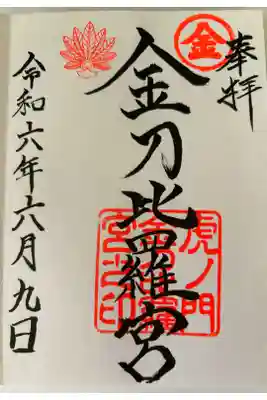 奉拝
金
金刀比羅宮
虎ノ門
金刀比羅
宮之印
令和六年六月九日